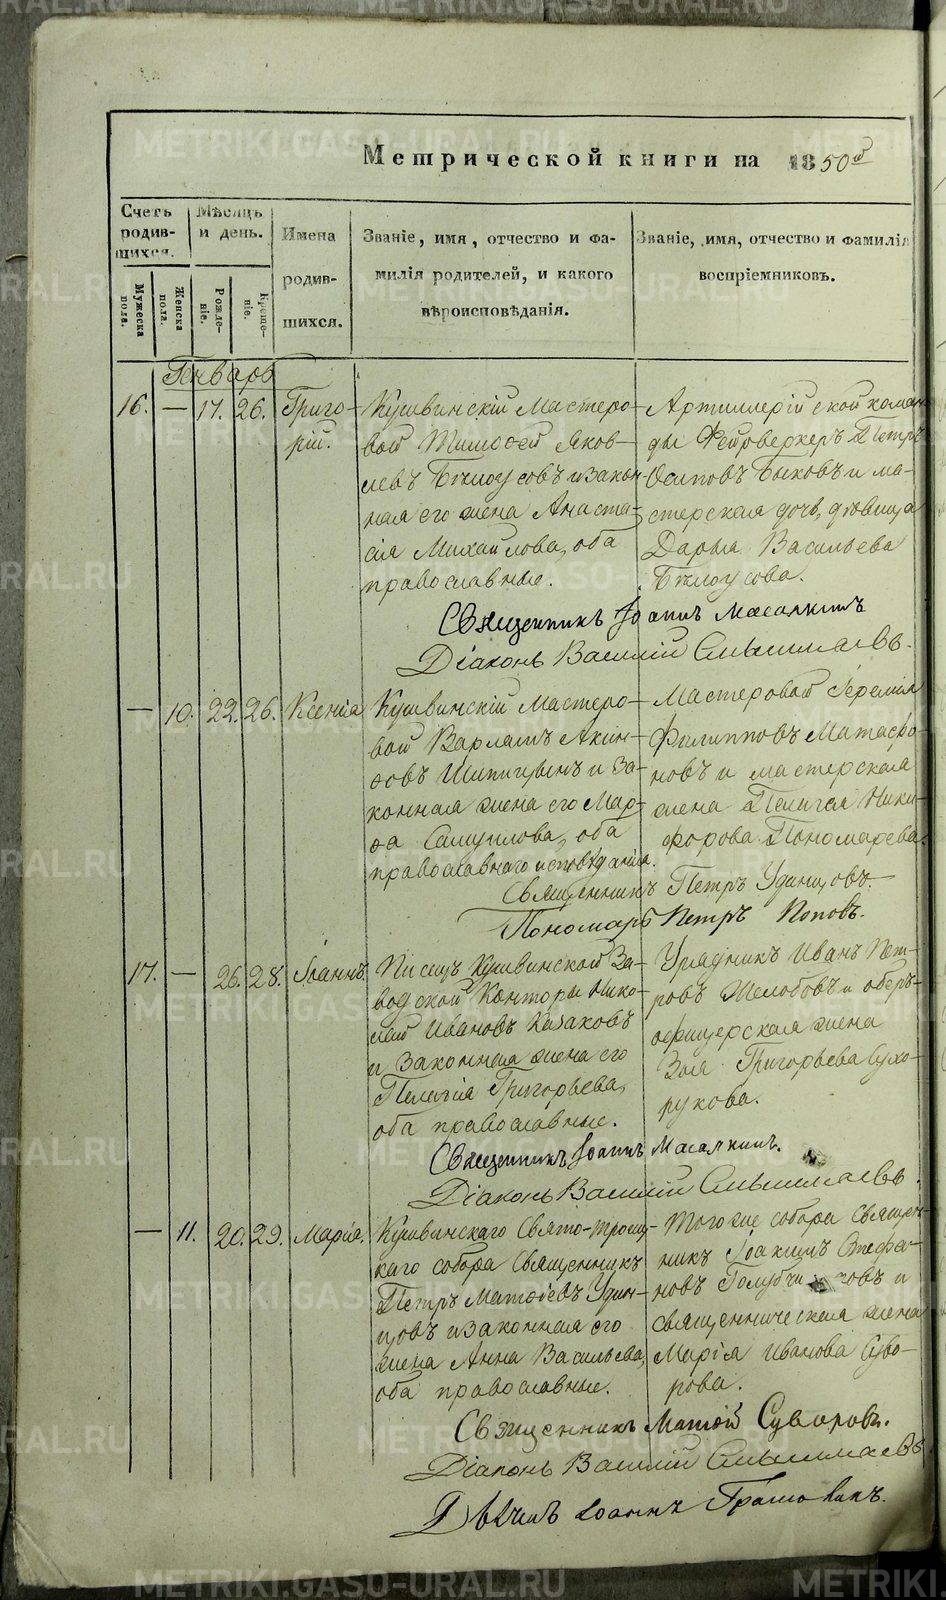 Метрической книги на 1850й
Счетъ родив-шихся.
Мѣсяцъ и день.
Имена родив-шихся.
Званіе, имя, отчество и фа-
милія родителей, и какого
вѣроисповѣданія.
Званіе, имя, отчество и фамилія
воспріемниковъ.
Мужеска пола.
Женска пола.
Рожде-ніе.
Креще-ніе.
Генварь
16. — 17. 26. Григо-
рій.
Кушвинскій Мастеро-
вой Тимофей Яков-
левъ Бѣлоусовъ и закон
ная его жена Анаста-
сія Михайлова, оба
православные.
Артиллерійской коман
ды Фейрверкеръ Петръ
Осиповъ Быковъ и ма-
стерская дочь, дѣвица
Дарья Васильева
Бѣлоусова.
Священникъ Іоаннъ Масалкинъ
Діаконъ Василій
— 10. 22. 26. Ксенія
Кушвинскій Мастеро-
вой Варламъ Акин-
ѳовъ Шипицынъ и за-
конная жена его Мар-
ѳа Самуилова, оба
православнаго исповѣданія.
Мастеровой Іеремія
Филипповъ Матафо-
новъ и мастерская
жена Пелагея Ники-
форова Пономарева.
Священникъ Петръ Удинцовъ.
Пономарь Петръ Поповъ.
17. — 26. 28. Іоаннъ.
Писецъ Кушвинской За-
водской Конторы Нико-
лай Ивановъ Казаковъ
и законная жена его
Пелагія Григорьева,
оба православные.
Урядникъ Иванъ Пет-
ровъ Желобовъ и оберъ-
офицерская жена
Зоя Григорьева Сухо-
рукова.
Священникъ Іоаннъ Масалкинъ.
Діаконъ Василій
— 11. 20. 29. Марія.
Кушвинскаго Свято-троиц-
каго собора Священникъ
Петръ Матѳіевъ Удин-
цовъ и законная его
жена Анна Васильева,
оба православные.
Того же собора Священ-
никъ Іоакимъ Стефа-
новъ и
священническая жена
Марія Иванова Суво-
рова.
Священникъ Матѳій Суворовъ.
Діаконъ Василій
Дьячекъ Іоаннъ